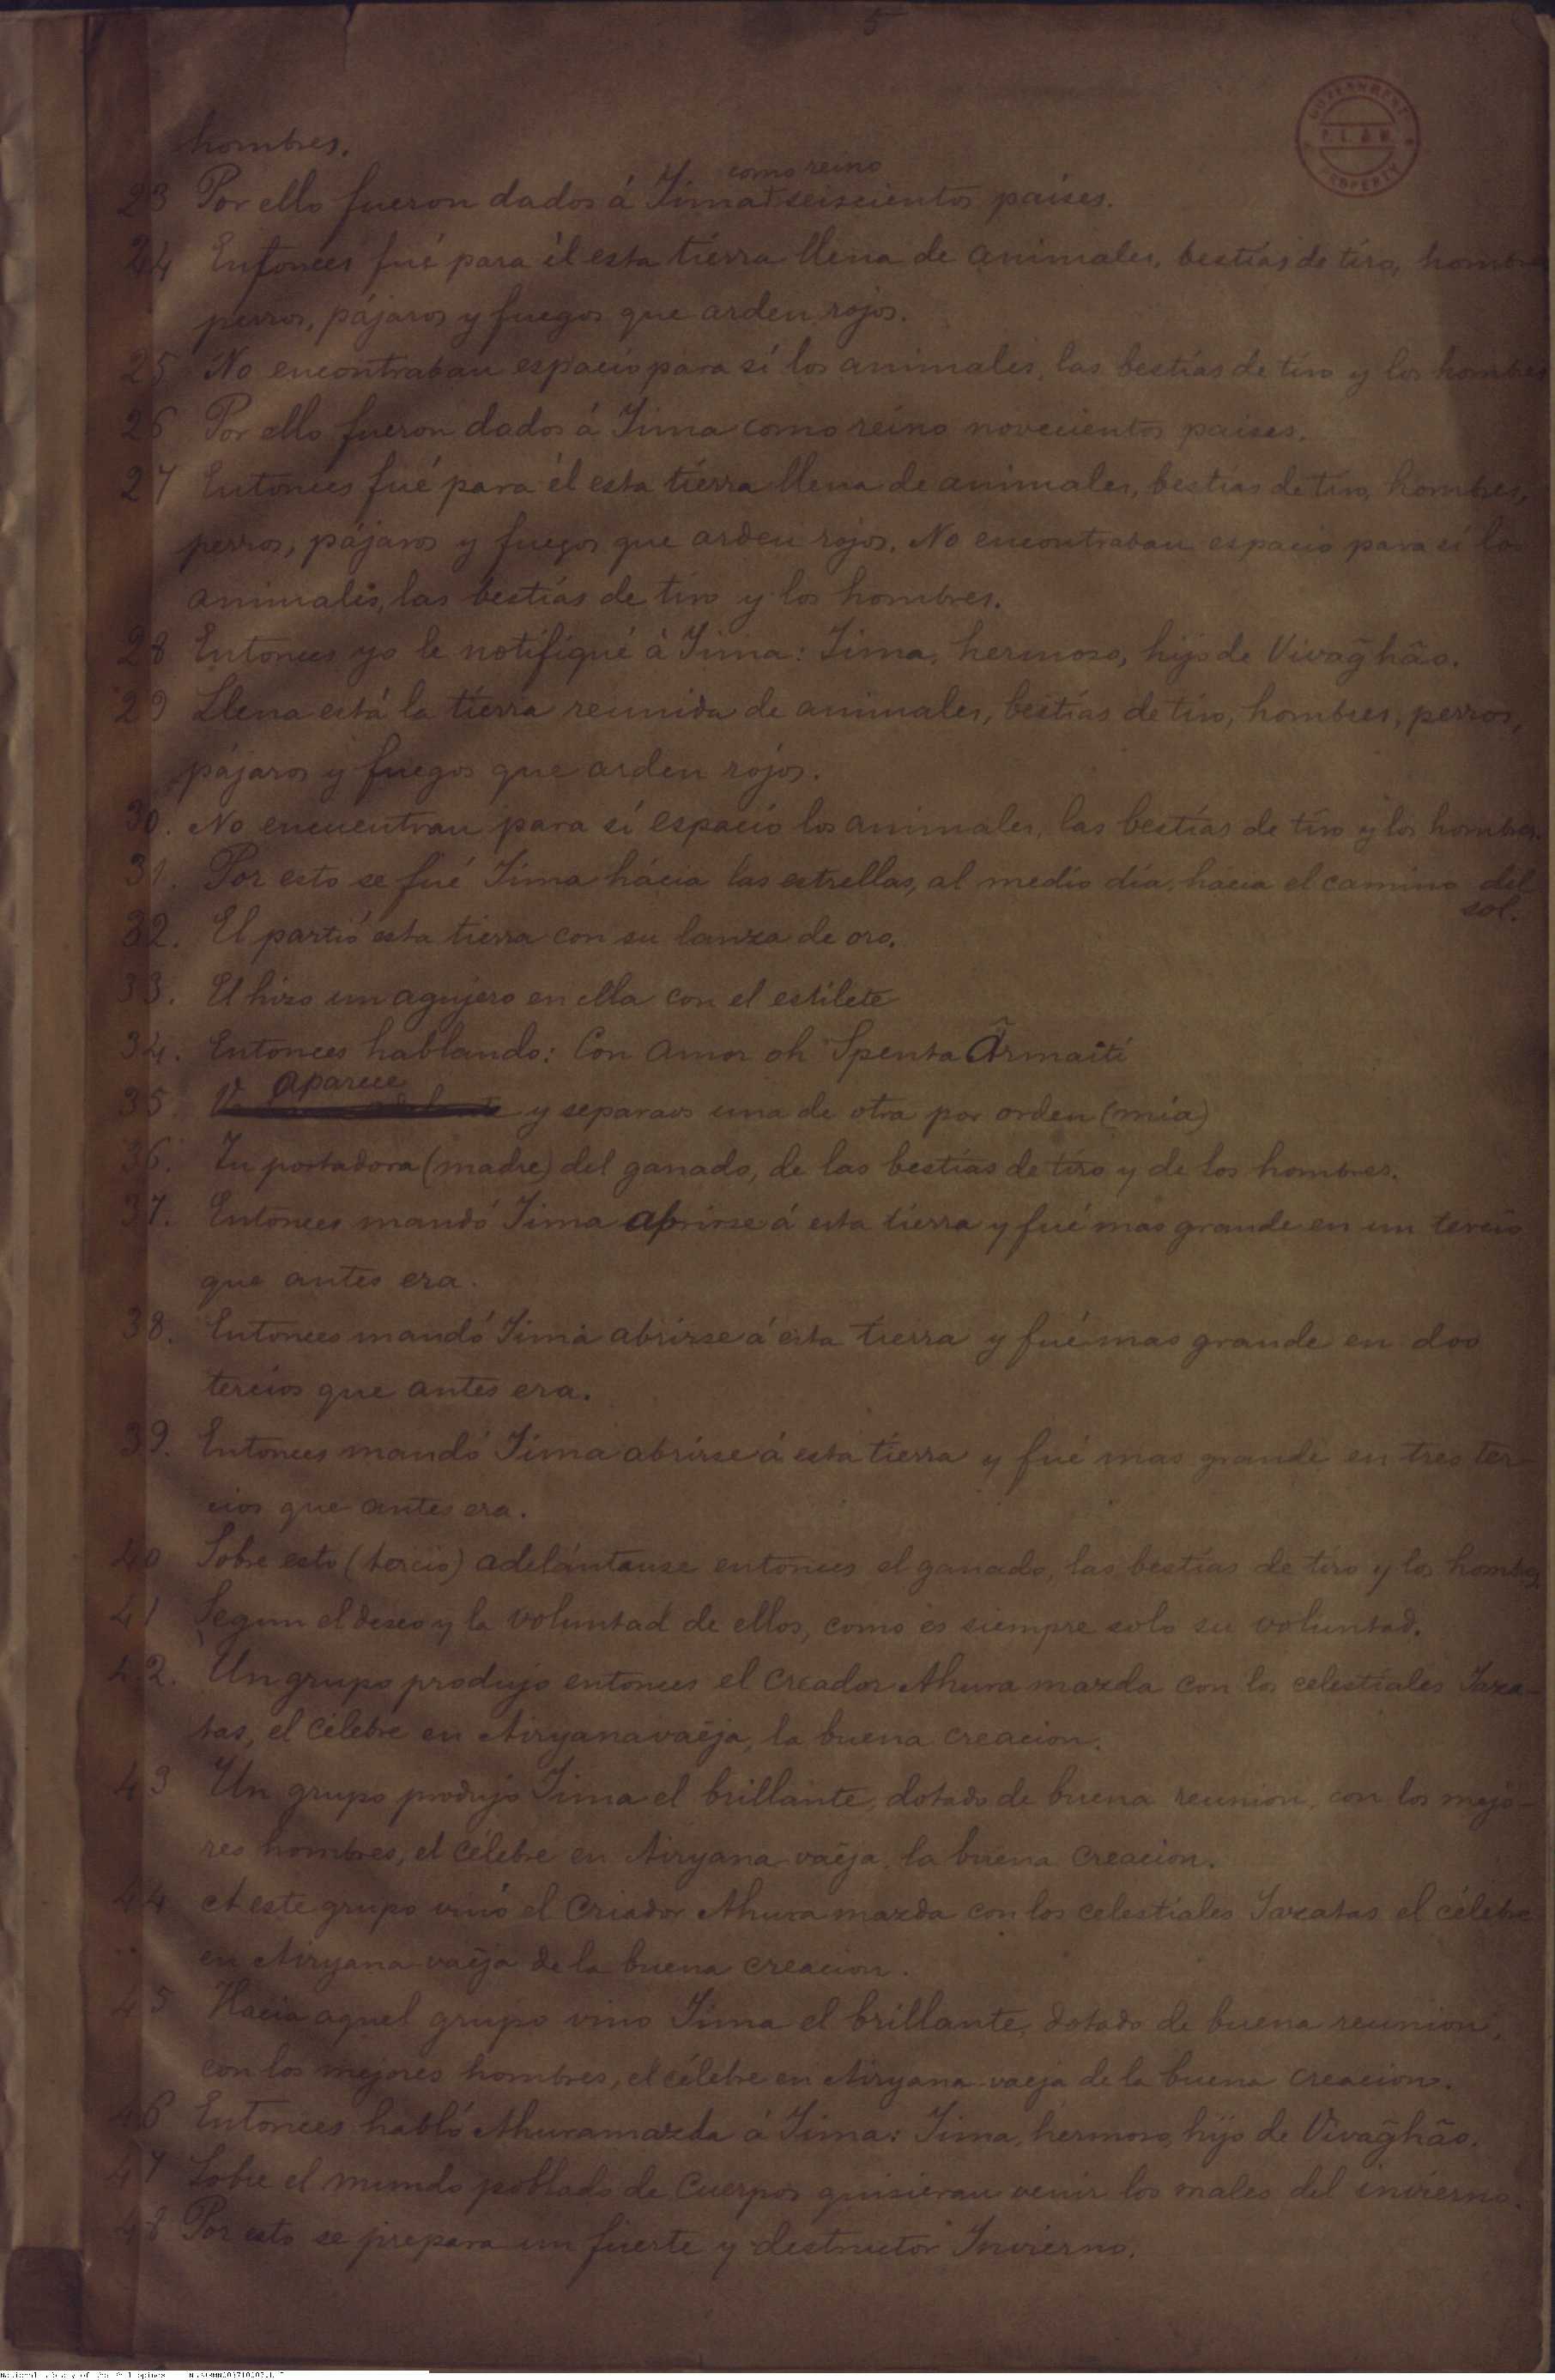 5
GOVERNMENT
P. L. & M.
PROPERTY
hombres.
como reino
23 Por ello fueron dados á Jima seiscientos paises.
24 Entonces fué para él esta tierra llena de animales, bestias de tiro, hombres
perros, pájaros y fuegos que arden rojos.
25 No encontraban espacio para sí los animales, las bestias de tiro y los hombres
26 Por ello fueron dados á Jima como reino novecientos paises.
27 Entonces fué para él esta tierra llena de animales, bestias de tiro, hombres,
perros, pájaros y fuegos que arden rojos. No encontraban espacio para sí los
animales, las bestias de tiro y los hombres.
28 Entonces yo le notifiqué à Jima: Jima, hermoso, hijo de Vivag̃hão.
29 Llena está la tierra reunida de animales, bestias de tiro, hombres, perros,
pájaros y fuegos que arden rojos.
30. No encuentran para sí espacio los animales, las bestias de tiro y los hombres.
31. Por esto se fué Jima hácia las estrellas, al medio dia, hácia el camino del
sol.
32. El partió esta tierra con su lanza de oro.
33. El hizo un agujero en ella con el estilete
34. Entonces hablando: Con amor oh Spenta Ãrmaiti
aparece
35. y separaos una de otra por orden (mia)
36. Tu portadora (madre) del ganado, de las bestias de tiro y de los hombres.
37. Entonces mandó Jima abrirse á esta tierra y fué mas grande en un tercio
que antes era.
38. Entonces mandó Jima abrirse á esta tierra y fué mas grande en dos
tercios que antes era.
39. Entonces mandó Jima abrirse á esta tierra y fué mas grande en tres ter-
cios que antes era.
40 Sobre esto (tercio) adelántanse entonces el ganado, las bestias de tiro y los hombres
41 Segun el deseo y la voluntad de ellos, como es siempre solo su voluntad.
42. Un grupo produjo entonces el Creador Ahura mazda con los celestiales Jaza-
tas, el célebre en Airyanavaẽja, la buena creacion.
43 Un grupo produjo Jima el brillante, dotado de buena reunion, con los mejo-
res hombres, el célebre en Airyana-vaẽja, la buena creacion.
44 A este grupo vinó el Criador Ahura mazda con los celestiales Jazatas el célebre
en Airyana-vaẽja de la buena creacion.
45 Hacia aquel grupo vino Jima el brillante, dotado de buena reunion,
con los mejores hombres, el célebre en Airyana-vaeja de la buena creacion.
46 Entonces habló Ahuramazda á Jima: Jima, hermoso, hijo de Vivag̃hão.
47 Sobre el mundo poblado de cuerpos quisieran venir los males del invierno.
48 Por esto se prepara un fuerte y destructor Invierno.